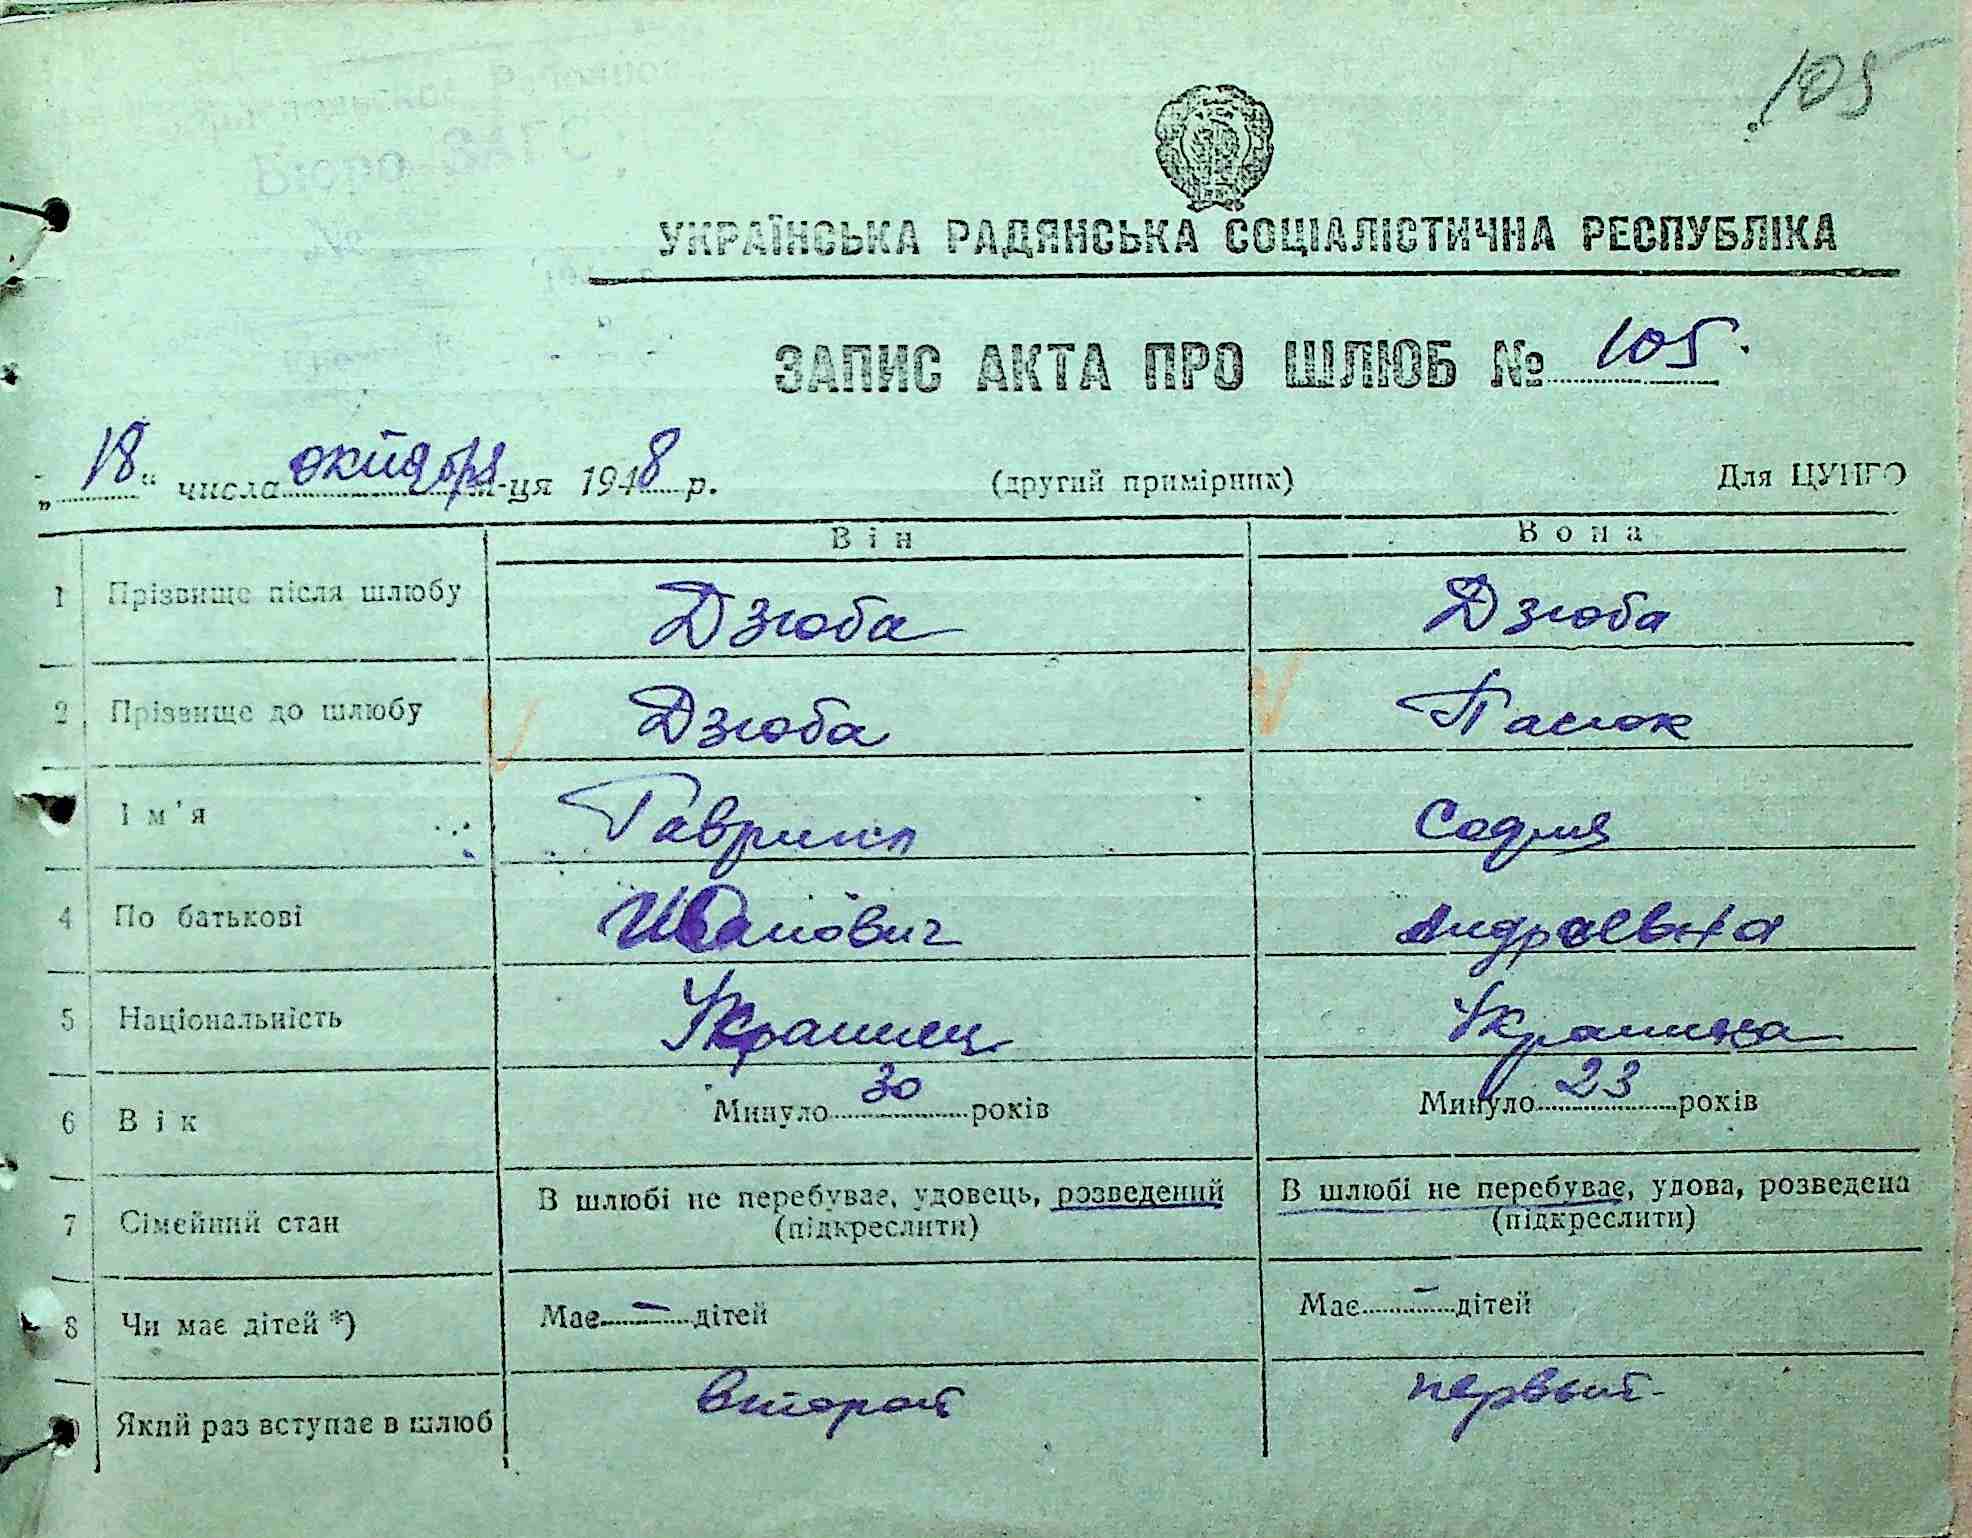 105
Бюро ЗАГС
№
УКРАЇНСЬКА РАДЯНСЬКА СОЦІАЛІСТИЧНА РЕСПУБЛІКА
ЗАПИС АКТА ПРО ШЛЮБ № 105.
„ 18 " числа октября м-ця 1948 р. (другий примірник) Для ЦУНГО
Він Вона
1 Прізвище після шлюбу Дзюба Дзюба
2 Прізвище до шлюбу Дзюба Пасюк
Ім'я Гавриил София
4 По батькові Иванович Андреевна
5 Національність Украинец Украинка
6 Вік Минуло 30 років Минуло 23 років
7 Сімейний стан В шлюбі не перебуває, удовець, розведений (підкреслити) В шлюбі не перебуває, удова, розведена (підкреслити)
8 Чи має дітей *) Має – дітей Має – дітей
Який раз вступає в шлюб второй первый